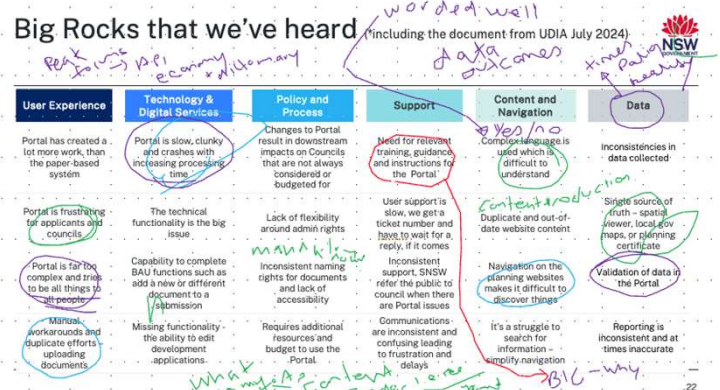 worded well
Big Rocks that we've heard (*including the document from UDIA July 2024)
NSW
GOVERNMENT
data
outcomes
economy
User Experience
Technology &
Digital Services
Policy and
Process
Support
Content and
Navigation
Data
Yes/no
Portal has created a
lot more work, than
the paper-based
system
Portal is slow, clunky
and crashes with
increasing processing
time
Changes to Portal
result in downstream
impacts on Councils
that are not always
considered or
budgeted for
Need for relevant
training, guidance
and instructions for
the Portal
Complex language is
used which is
difficult to
understand
Inconsistencies in
data collected
Portal is frustrating
for applicants and
councils
The technical
functionality is the big
issue
Lack of flexibility
around admin rights
User support is
slow, we get a
ticket number and
have to wait for a
reply, if it comes
content production
Duplicate and out-of-
date website content
Single source of
truth – spatial
viewer, local gov
maps, or planning
certificate
Portal is far too
complex and tries
to be all things to
all people
Capability to complete
BAU functions such as
add a new or different
document to a
submission
Inconsistent naming
rights for documents
and lack of
accessibility
Inconsistent
support, SNSW
refer the public to
council when there
are Portal issues
Navigation on the
planning websites
makes it difficult to
discover things
Validation of data in
the Portal
Manual
workarounds and
duplicate efforts –
uploading
documents
Missing functionality –
the ability to edit
development
applications
Requires additional
resources and
budget to use the
Portal
Communications
are inconsistent and
confusing leading
to frustration and
delays
It's a struggle to
search for
information –
simplify navigation
Reporting is
inconsistent and at
times inaccurate
what
content
BIC - why
22